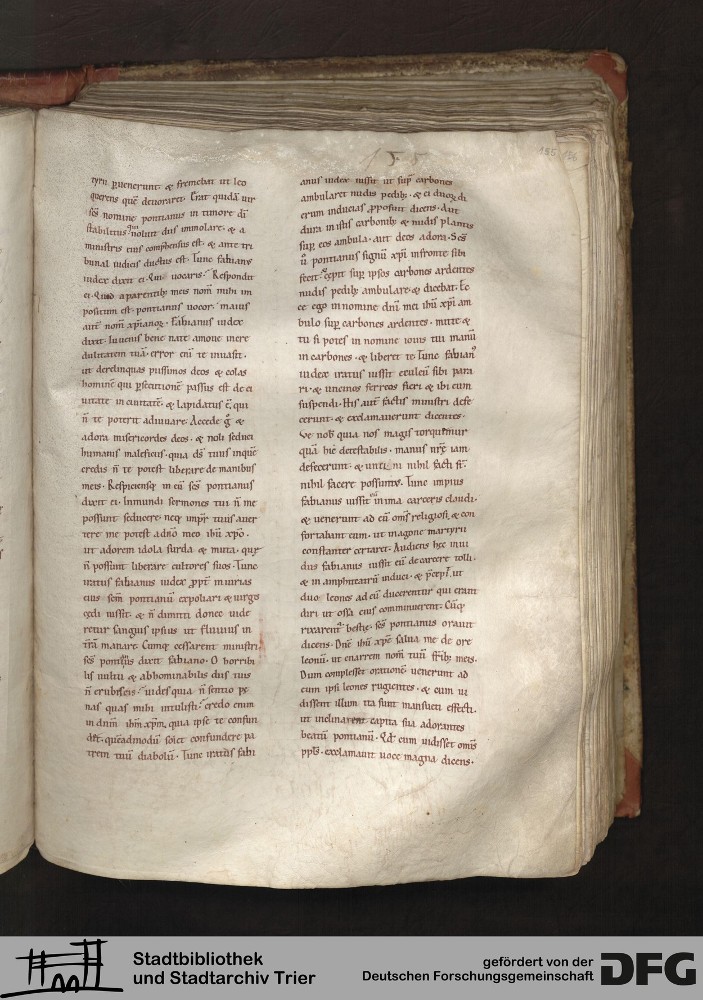 155
135 136
tyrii puenerunt· & fremebat ut leo
querens quē deuoraret. Erat quidā uir
scs nomine pontianus in timore dī
stabilitus qui noluit diis immolare· & a
ministris eius comp̄hensus est· & ante tri
bunal iudicis ductus est· Tunc fabianus
iudex dixit ei· Qui uocaris? Respondit
ei· Quid a parentib; meis nom̄ mihi im
positum est· pontianus uocor· maius
autē nom̄ xpianoꝝ· Fabianus iudex
dixit· Iuuenis bene nate amone mere
dulitatem tuā· error enī te inuasit·
ut derelinquas piissimos deos & colas
hominē qui psecutionē passus est de ci
uitate in ciuitatē· & lapidatus ē· qui
n̄ te poterit adiuuare· Accede g̊ &
adora misericordes deos· & noli seduci
humanis maleficiis· quia ds̄ tuus inquē
credis n̄ te potest liberare de manibus
meis· Respiciensq; in eū scs̄ pontianus
dixit ei· Inmundi sermones tui n̄ me
possunt seducere· neq; impr̄ tuus auer
tere me potest adn̄o meo ihū xpo·
ut adorem idola surda & muta· que
n̄ possunt liberare cultores suos· Tunc
iratus fabianus iudex ꝓpt̄ iniurias
eius scm̄ pontianū expoliari & uirgis
cędi iussit· & n̄ dimitti donec uide
retur sanguis ipsius ut fluuius in
t̄rā manare· Cumq; cessarent ministri
scs̄ pontianus dixit fabiano· O horribi
lis uultu & abhominabilis diis tuis
n̄ erubescis? uides quia n̄ sentio pę
nas quas mihi intulisti? credo enim
in dn̄m ihm̄ xpm̄· quia ipse te confun
det· quēadmodū solet confundere pa
trem tuū diabolū· Tunc iratus fabi
anus iudex iussit ut sup̄ carbones
ambularet nudis pedib;· & ei duoꝝ di
erum inducias ꝓposuit dicens· Aut
dura in istis carbonib; & nudis plantis
sup̄ eos ambula· aut deos adora· Scs̄
ū pontianus signū xpi infronte sibi
fecit· & cępit sup̄ ipsos carbones ardentes
nudis pedib; ambulare· & dicebat· Ec
ce ego in nomine dn̄i mei ihū xpi am
bulo sup̄ carbones ardentes· mitte &
tu si potes in nomine iouis tui manū
in carbones· & liberet te· Tunc fabian'
iudex iratus iussit eculeū sibi para
ri· & uncinos ferreos fieri & ibi eum
suspendi· His autē factis ministri defe
cerunt· & exclamauerunt dicentes·
Ve nob̄ quia nos magis torquimur
quā hic detestabilis· manus nr̄ę iam
defecerunt· & unti ni nihil facti st̄·
nihil facere possum'· Tunc impius
fabianus iussit eū in ima carceris claudi·
& uenerunt ad eū oms̄ religiosi· & con
fortabant eum· ut inagone martyrii
constanter certaret· Audiens hęc inui
dus fabianus iussit eū de carcere tolli·
& in amphiteatrū induci· & p̄cepit· ut
duo leones ad eū ducerentur qui erant
diri ut ossa eius comminuerent· Cūq;
rixarent' bestię· scs̄ pontianus orauit
dicens· Dn̄e ihū xpe salua me de ore
leonū· ut enarrem nom̄ tuū fr̄ib; meis·
Dum complesset orationē uenerunt ad
eum ipsi leones rugientes· & cum ui
dissent illum ita sunt mansueti effecti·
ut inclinarent capita sua adorantes
beatū pontianū· Qd̄ cum uidisset omīs
ppl̄s· exclamauit uoce magna dicens·
Stadtbibliothek
und Stadtarchiv Trier
gefördert von der
Deutschen Forschungsgemeinschaft
DFG